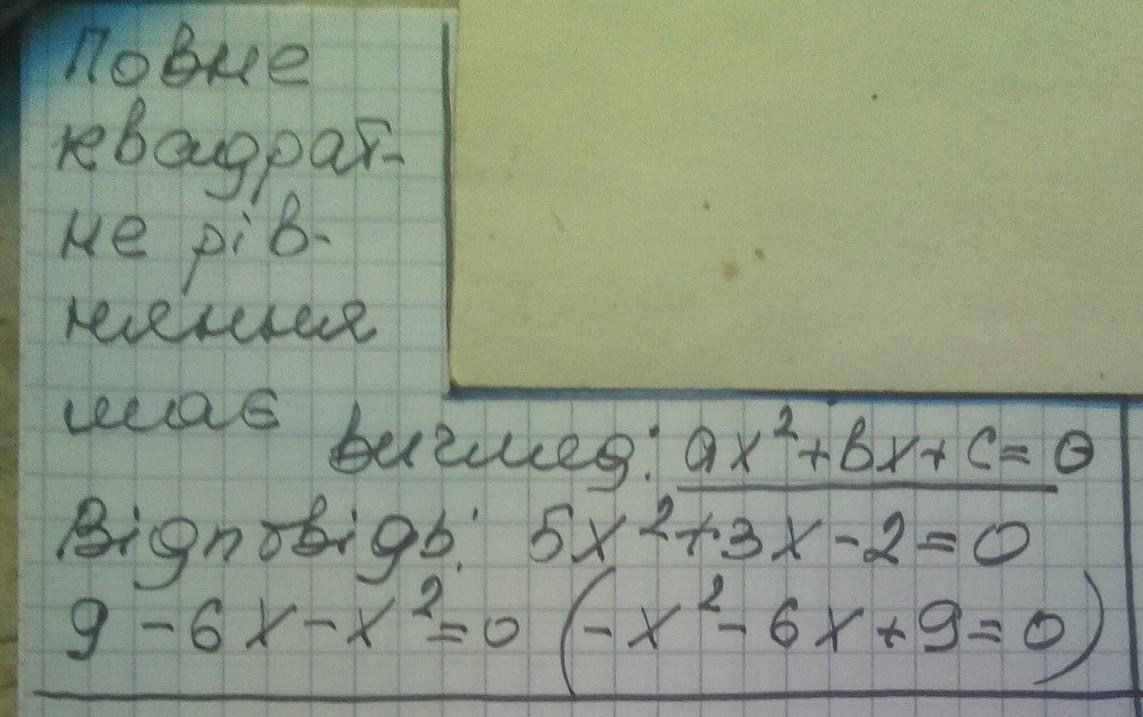 Повне
квадрат-
не рів-
няння
має
вигляд: ax²+bx+c=0
Відповідь: 5x²+3x-2=0
9-6x-x²=0 (-x²-6x+9=0)